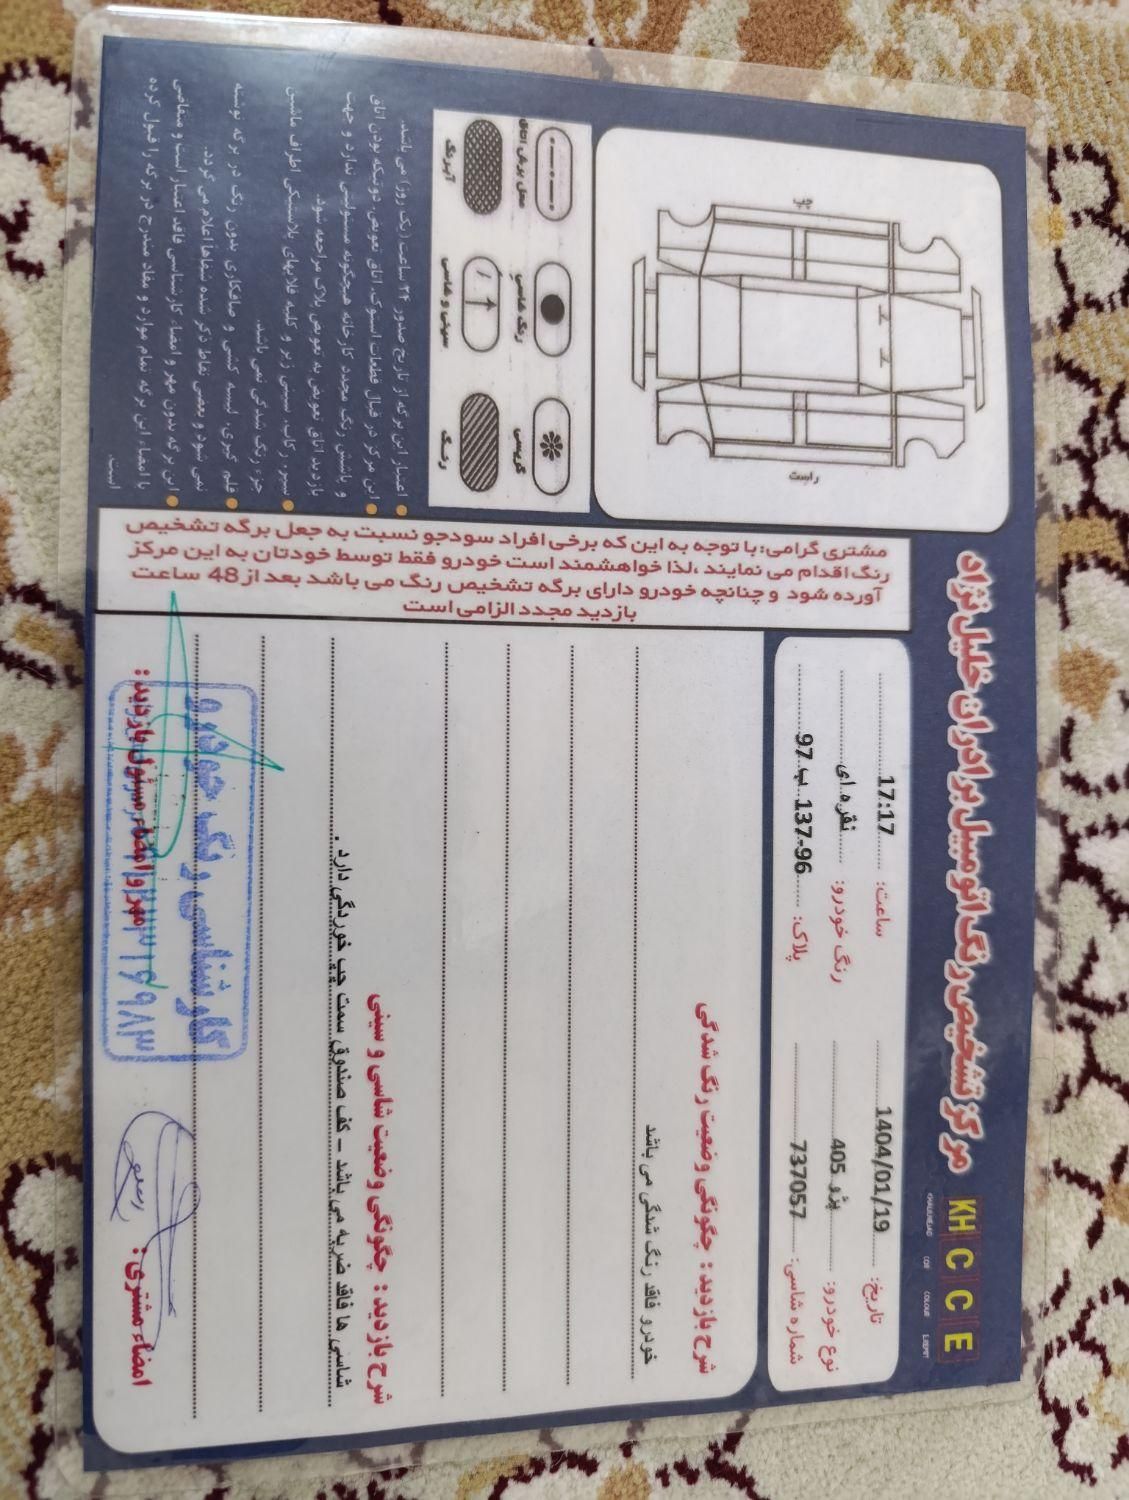 مرکز تشخیص رنگ اتومبیل برادران خلیل نژاد
KH C C E
تاریخ: 1404/01/19 ساعت: 17:17
نوع خودرو: پژو 405 رنگ خودرو: نقره ای
شماره شاسی: 737057 پلاک: 96-137 ب 97
شرح بازدید: چگونگی وضعیت رنگ شدگی
خودرو فاقد رنگ شدگی می باشد
شرح بازدید: چگونگی وضعیت شاسی و سینی
شاسی ها فاقد ضربه می باشد - کف صندوق سمت چپ خوردگی دارد .
امضاء مشتری:
مهر و امضاء مسئول بازدید:
کارشناسی رنگ خودرو
مشتری گرامی: با توجه به این که برخی افراد سودجو نسبت به جعل برگه تشخیص
رنگ اقدام می نمایند ،لذا خواهشمند است خودرو فقط توسط خودتان به این مرکز
آورده شود و چنانچه خودرو دارای برگه تشخیص رنگ می باشد بعد از 48 ساعت
بازدید مجدد الزامی است
چپ
راست
محل برش اتاق
رنگ شاسی
گریسی
آبرنگ
سینی و شاسی
رنگ
اعتبار این برگه از تاریخ صدور ۲۴ ساعت (یک روز) می باشد.
این مرکز در قبال قطعات استوک، اتاق تعویض، دوتیکه بودن اتاق
و پاشش رنگ مجدد کارخانه هیچگونه مسئولیتی ندارد و جهت
بازدید اتاق تعویض به تعویض پلاک مراجعه شود.
سپر، رکاب، سینی زیر و کلیه قلابهای پلاستیکی اطراف ماشین
جزء رنگ شدگی نمی باشد.
قلم گیری، لیسه کشی و صافکاری بدون رنگ در برگه نوشته
نمی شود و بعضی نقاط ذکر شده شفاها اعلام می گردد.
این برگه بدون مهر و امضاء کارشناسی فاقد اعتبار است و متقاضی
با امضاء این برگه تمام موارد و مفاد مندرج در برگه را قبول کرده
است.